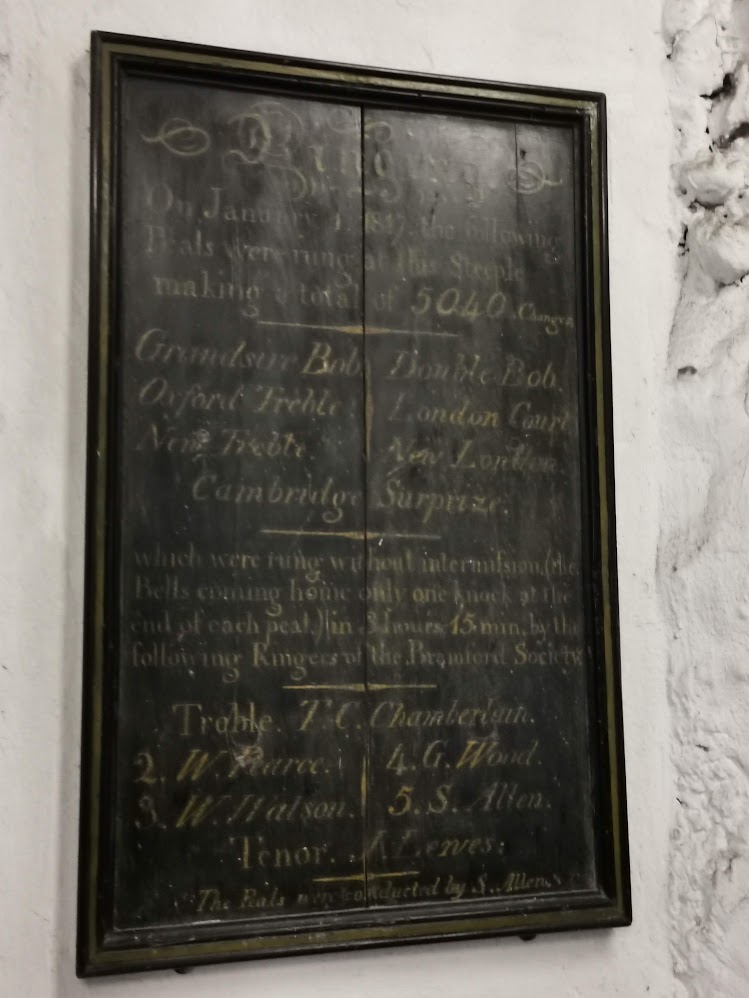 Ringing.
On January 1, 1817, the following
Peals were rung at this Steeple
making a total of 5040 Changes
Grandsire Bob. Double Bob.
Oxford Treble. London Court
New Treble. New London.
Cambridge Surprize.
which were rung without intermiſsion, (the
Bells coming home only one knock at the
end of each peal,) in 3 hours, 15 min, by the
following Ringers of the Bramford Society.
Treble. T. C. Chamberlain.
2. W. Pearce. 4. G. Wood.
3. W. Watson. 5. S. Allen.
Tenor.
The Peals were conducted by S. Allen.